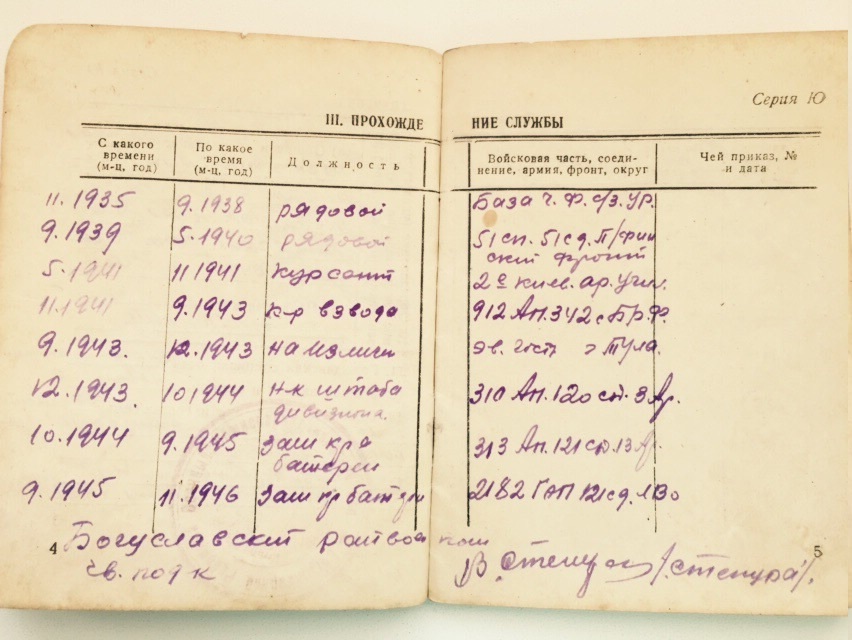 Серия Ю
III. ПРОХОЖДЕНИЕ СЛУЖБЫ
С какого времени (м-ц, год) По какое время (м-ц, год) Должность Войсковая часть, соединение, армия, фронт, округ Чей приказ, № и дата
11.1935 9.1938 рядовой База Ч.Ф. с/з. УР.
9.1939 5.1940 рядовой 51 сп. 51 сд. П/фин
ский фронт
5.1941 11 1941 курсант 2е киев. ар. учил.
11.1941 9.1943 к-р взвода 912 Ап. 342 с Бр.Ф.
9.1943. 12.1943 на излеч эв. госп г Тула.
12.1943. 10 1944 н-к штаба 310 Ап. 120 сд. 3 Ар.
дивизиона.
10.1944 9.1945 зам к-ра 313 Ап. 121 сд. 13 Ар.
батареи
9.1945 11.1946 зам кр батареи 2182 ГАП 121 сд.
Богуславский райвоенком
гв. под к В. Степура /Степура/.
4 5